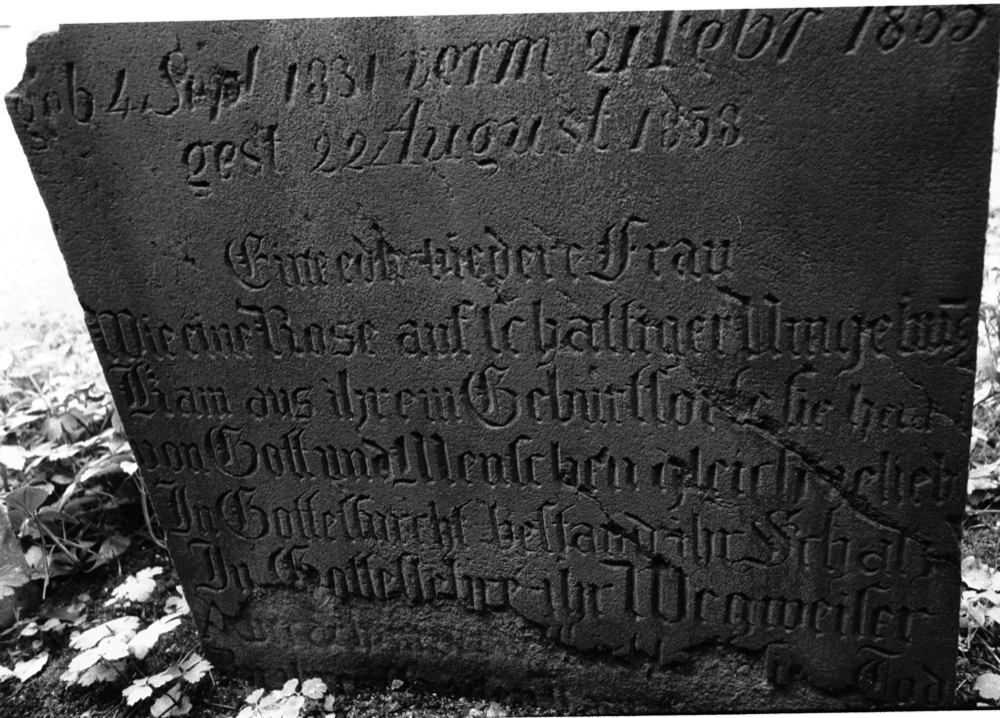 geb 4. Sept 1831 verm 21 Febr 1855
gest 22 August 1858
Eine edle biedere Frau
Wie eine Rose auf schattiger Umgebu
Kam aus ihrem Geburtsorte sie hera
von Gott und Menschen gleich geliebt
In Gottesfurcht bestand ihr Schatz
In Gotteslehre ihr Wegweiser
Tod